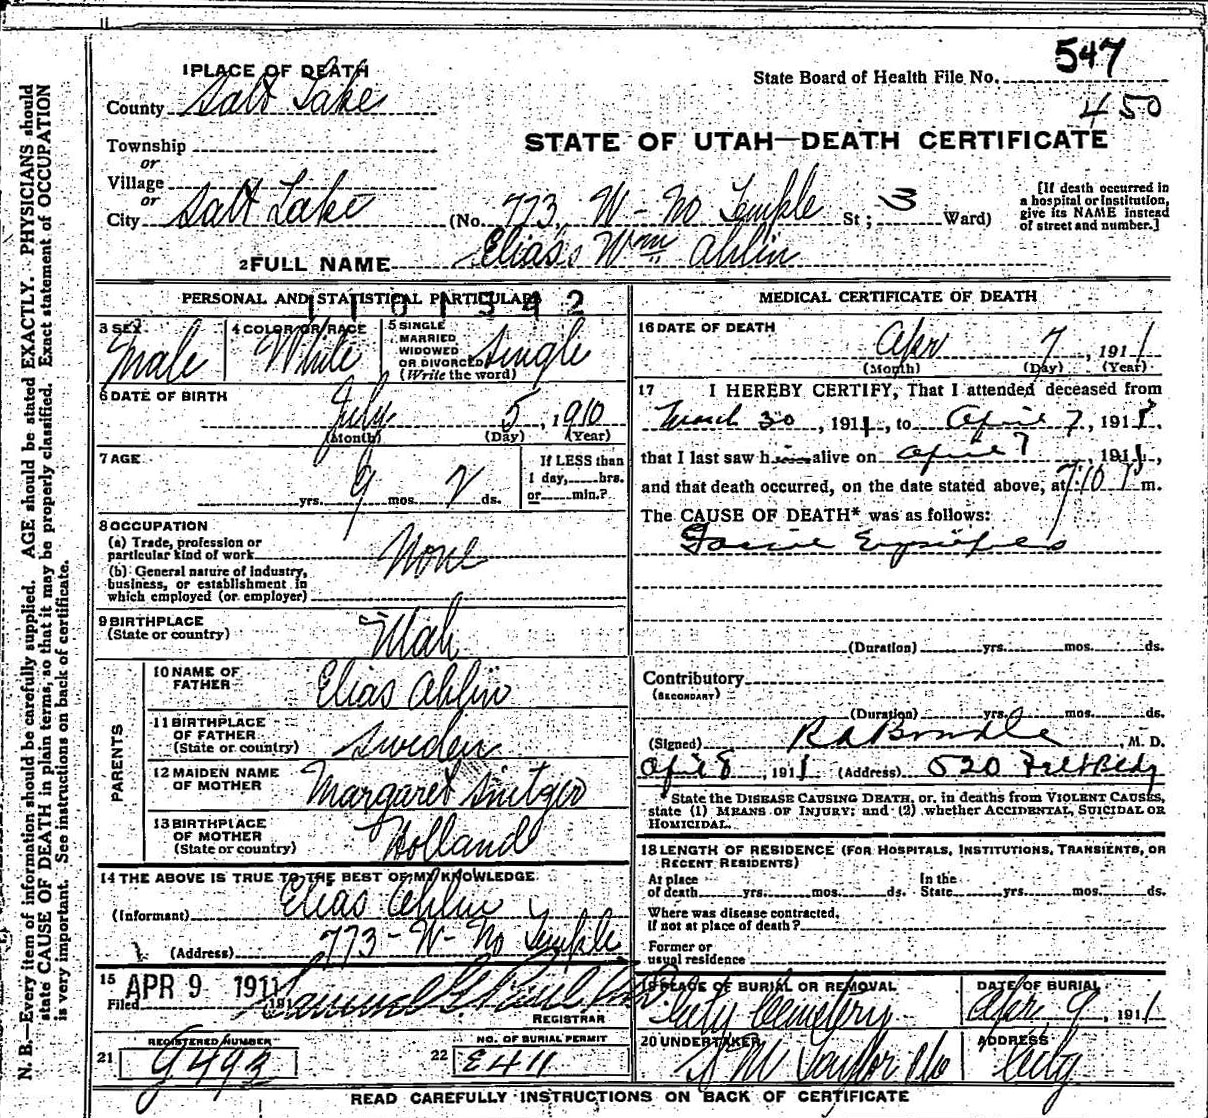 547
State Board of Health File No.
450
1 PLACE OF DEATH
County Salt Lake
STATE OF UTAH—DEATH CERTIFICATE
Township
or
Village
or
City Salt Lake (No. 773, W - No Temple St; 3 Ward)
[If death occurred in a hospital or institution, give its NAME instead of street and number.]
2 FULL NAME Elias Wm Ahlin
PERSONAL AND STATISTICAL PARTICULARS
1101342
3 SEX Male
4 COLOR OR RACE White
5 SINGLE MARRIED WIDOWED OR DIVORCED (Write the word) Single
6 DATE OF BIRTH
July 5, 1910
(Month) (Day) (Year)
7 AGE
yrs. 9 mos. 2 ds.
If LESS than 1 day, hrs. or min.?
8 OCCUPATION
(a) Trade, profession or particular kind of work None
(b) General nature of industry, business, or establishment in which employed (or employer)
9 BIRTHPLACE
(State or country) Utah
PARENTS
10 NAME OF FATHER Elias Ahlin
11 BIRTHPLACE OF FATHER (State or country) Sweden
12 MAIDEN NAME OF MOTHER Margaret
13 BIRTHPLACE OF MOTHER (State or country) Holland
14 THE ABOVE IS TRUE TO THE BEST OF MY KNOWLEDGE
(Informant) Elias Ahlin
(Address) 773 - W - No Temple
15
Filed APR 9 1911 191
REGISTRAR
REGISTERED NUMBER
21
NO. OF BURIAL PERMIT
22 E411
MEDICAL CERTIFICATE OF DEATH
16 DATE OF DEATH
Apr 7, 1911
(Month) (Day) (Year)
17 I HEREBY CERTIFY, That I attended deceased from
March 30, 1911, to April 7, 1911,
that I last saw him alive on April 7 1911,
and that death occurred, on the date stated above, at 7:10 P m.
The CAUSE OF DEATH* was as follows:
Facial Erysipelas
(Duration) yrs. mos. ds.
Contributory
(SECONDARY)
(Duration) yrs. mos. ds.
(Signed) M. D.
April 8, 1911 (Address) 520
State the DISEASE CAUSING DEATH, or, in deaths from VIOLENT CAUSES, state (1) MEANS OF INJURY; and (2) whether ACCIDENTAL, SUICIDAL OR HOMICIDAL.
18 LENGTH OF RESIDENCE (FOR HOSPITALS, INSTITUTIONS, TRANSIENTS, OR RECENT RESIDENTS)
At place of death yrs. mos. ds. In the State yrs. mos. ds.
Where was disease contracted, If not at place of death?
Former or usual residence
19 PLACE OF BURIAL OR REMOVAL City Cemetery
DATE OF BURIAL Apr 9, 1911
20 UNDERTAKER S M Taylor & Co
ADDRESS City
READ CAREFULLY INSTRUCTIONS ON BACK OF CERTIFICATE
N. B.—Every item of information should be carefully supplied. AGE should be stated EXACTLY. PHYSICIANS should
state CAUSE OF DEATH in plain terms, so that it may be properly classified. Exact statement of OCCUPATION
is very important. See instructions on back of certificate.